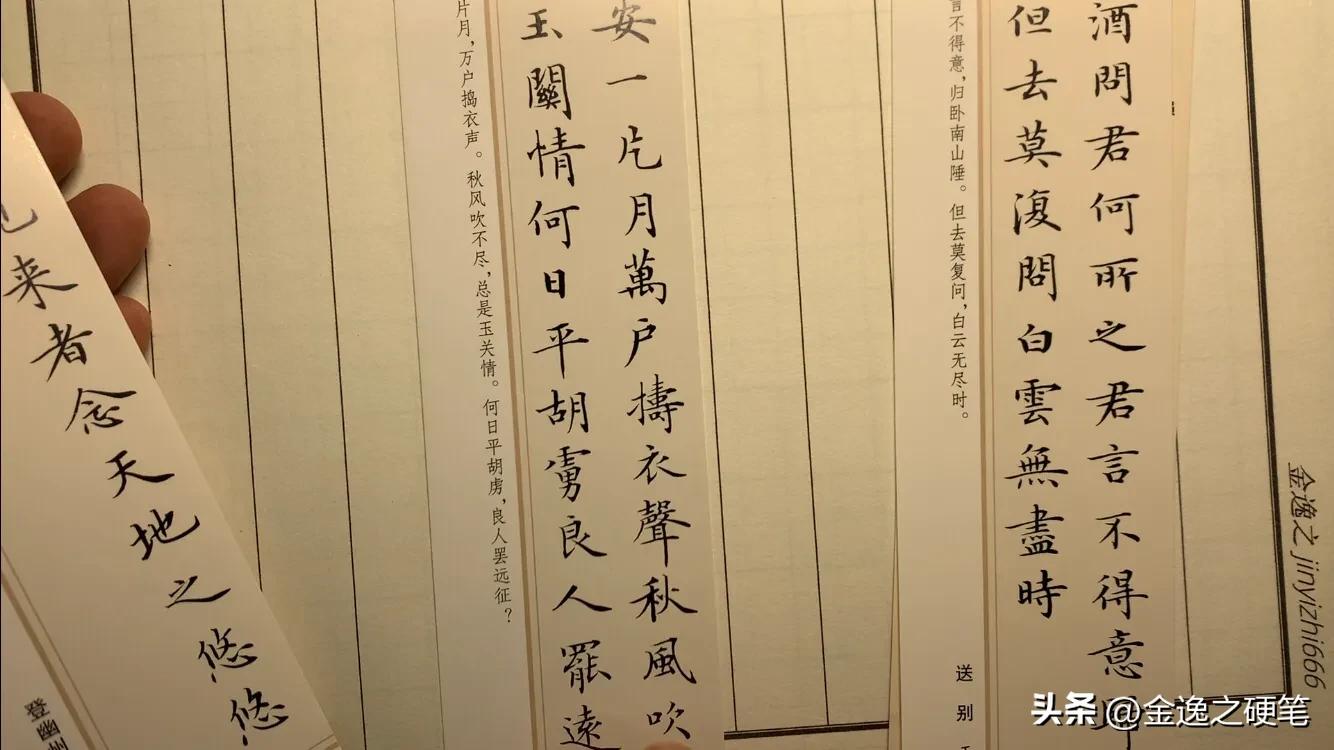 金逸之 jinyizhi666
酒問君何所之君言不得意
但去莫復問白雲無盡時
言不得意，归卧南山陲。但去莫复问，白云无尽时。
送别
安一片月萬户擣衣聲秋風吹
玉關情何日平胡虜良人罷遠
片月，万户捣衣声。秋风吹不尽，总是玉关情。何日平胡虏，良人罢远征？
来者念天地之悠悠
登幽
头条 @金逸之硬笔